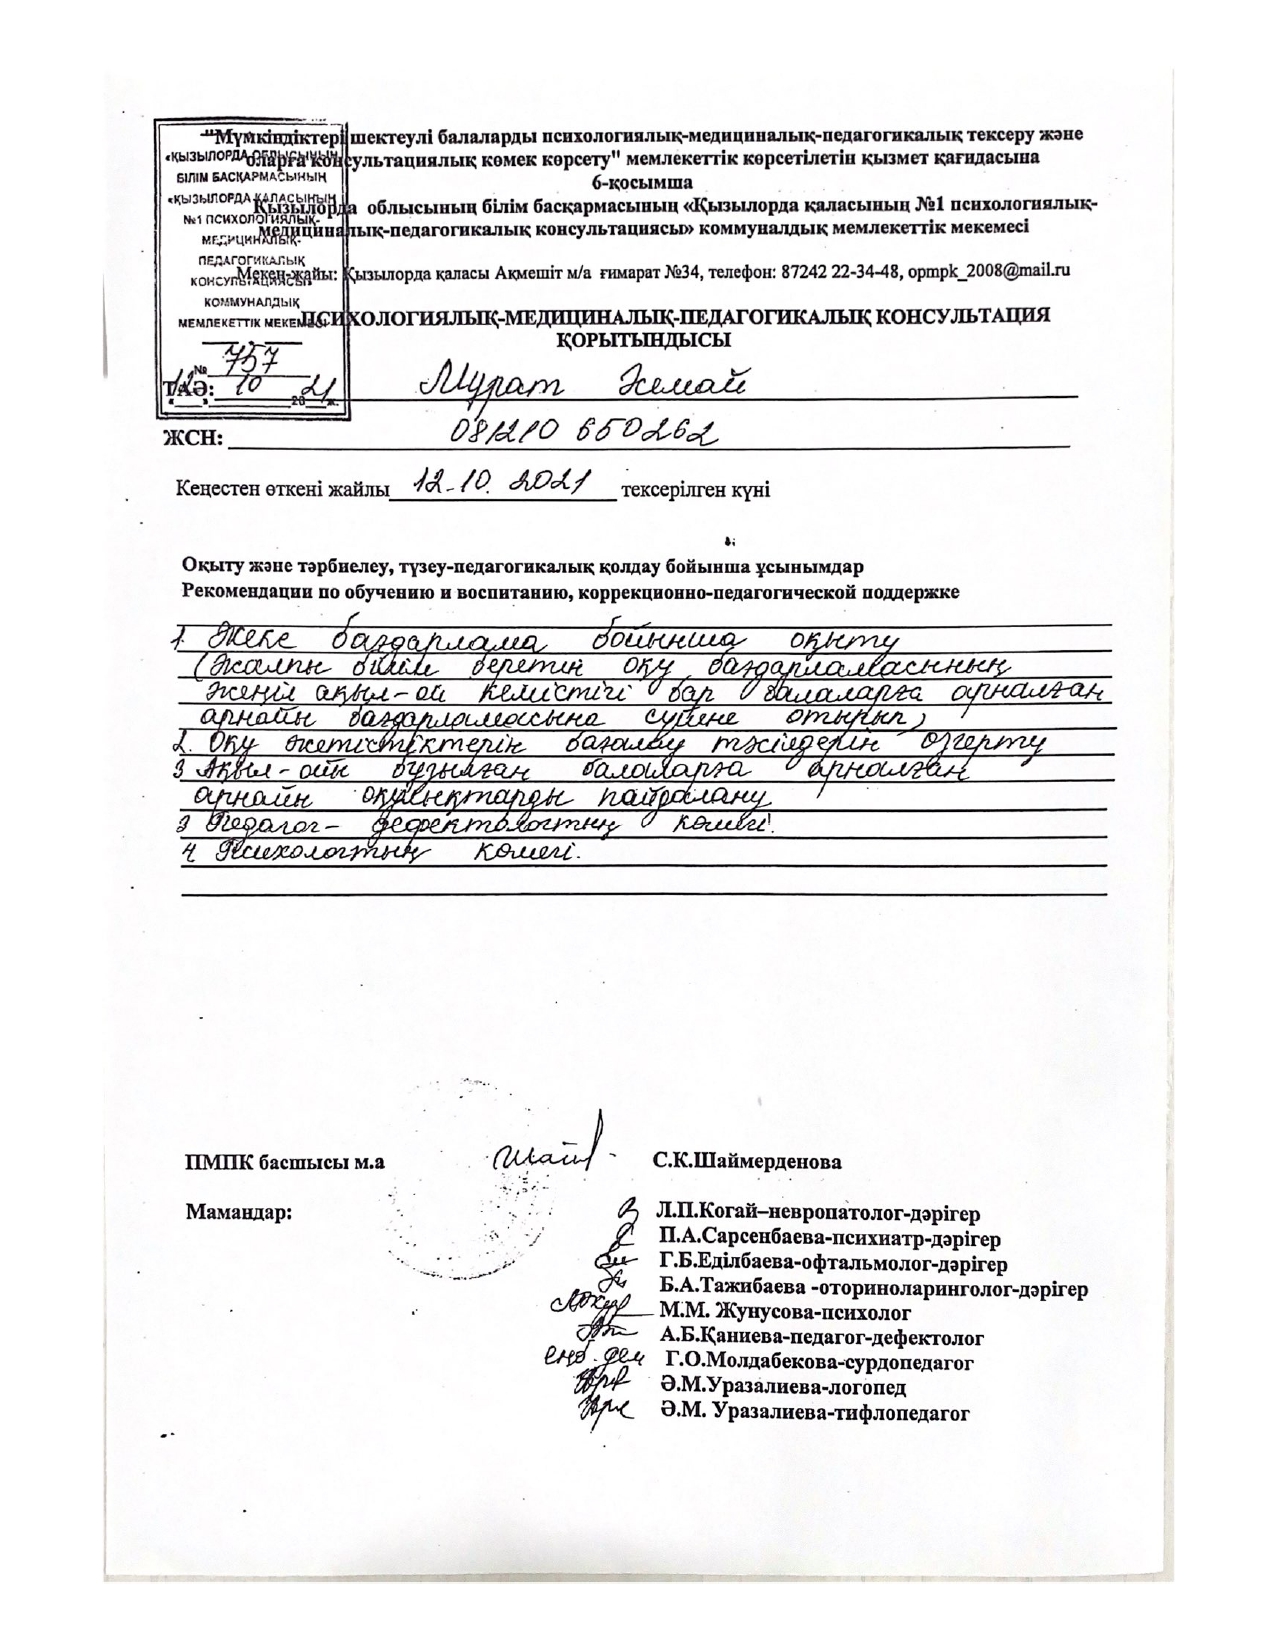 "Мүмкіндіктері шектеулі балаларды психологиялық-медициналық-педагогикалық тексеру және
оларға консультациялық көмек көрсету" мемлекеттік көрсетілетін қызмет қағидасына
6-қосымша
Қызылорда облысының білім басқармасының «Қызылорда қаласының №1 психологиялық-
медициналық-педагогикалық консультациясы» коммуналдық мемлекеттік мекемесі
«ҚЫЗЫЛОРДА ОБЛЫСЫНЫҢ
БІЛІМ БАСҚАРМАСЫНЫҢ
«ҚЫЗЫЛОРДА ҚАЛАСЫНЫҢ
№1 ПСИХОЛОГИЯЛЫҚ-
МЕДИЦИНАЛЫҚ-
ПЕДАГОГИКАЛЫҚ
КОНСУЛЬТАЦИЯСЫ»
КОММУНАЛДЫҚ
МЕМЛЕКЕТТІК МЕКЕМЕСІ
№ 757
12 10 2021 ж.
Мекен-жайы: Қызылорда қаласы Ақмешіт м/а ғимарат №34, телефон: 87242 22-34-48, opmpk_2008@mail.ru
ПСИХОЛОГИЯЛЫҚ-МЕДИЦИНАЛЫҚ-ПЕДАГОГИКАЛЫҚ КОНСУЛЬТАЦИЯ
ҚОРЫТЫНДЫСЫ
ТАӘ: Мұрат Жемай
ЖСН: 081210 650262
Кеңестен өткені жайлы 12-10. 2021 тексерілген күні
Оқыту және тәрбиелеу, түзеу-педагогикалық қолдау бойынша ұсынымдар
Рекомендации по обучению и воспитанию, коррекционно-педагогической поддержке
1. Жеке бағдарлама бойынша оқыту
(Жалпы білім беретін оқу бағдарламасының
жеңіл ақыл-ой кемістігі бар балаларға арналған
арнайы бағдарламасына сүйене отырып)
2. Оқу жетістіктерін бағалау тәсілдерін өзгерту
3 Ақыл-ойы бұзылған балаларға арналған
арнайы оқулықтарды пайдалану
3 Педагог-дефектологтың көмегі.
4 Психологтың көмегі.
ПМПК басшысы м.а С.К.Шаймерденова
Мамандар: Л.П.Когай–невропатолог-дәрігер
П.А.Сарсенбаева-психиатр-дәрігер
Г.Б.Еділбаева-офтальмолог-дәрігер
Б.А.Тажибаева -оториноларинголог-дәрігер
М.М. Жунусова-психолог
А.Б.Қаниева-педагог-дефектолог
еңб.дем Г.О.Молдабекова-сурдопедагог
Ә.М.Уразалиева-логопед
Ә.М. Уразалиева-тифлопедагог